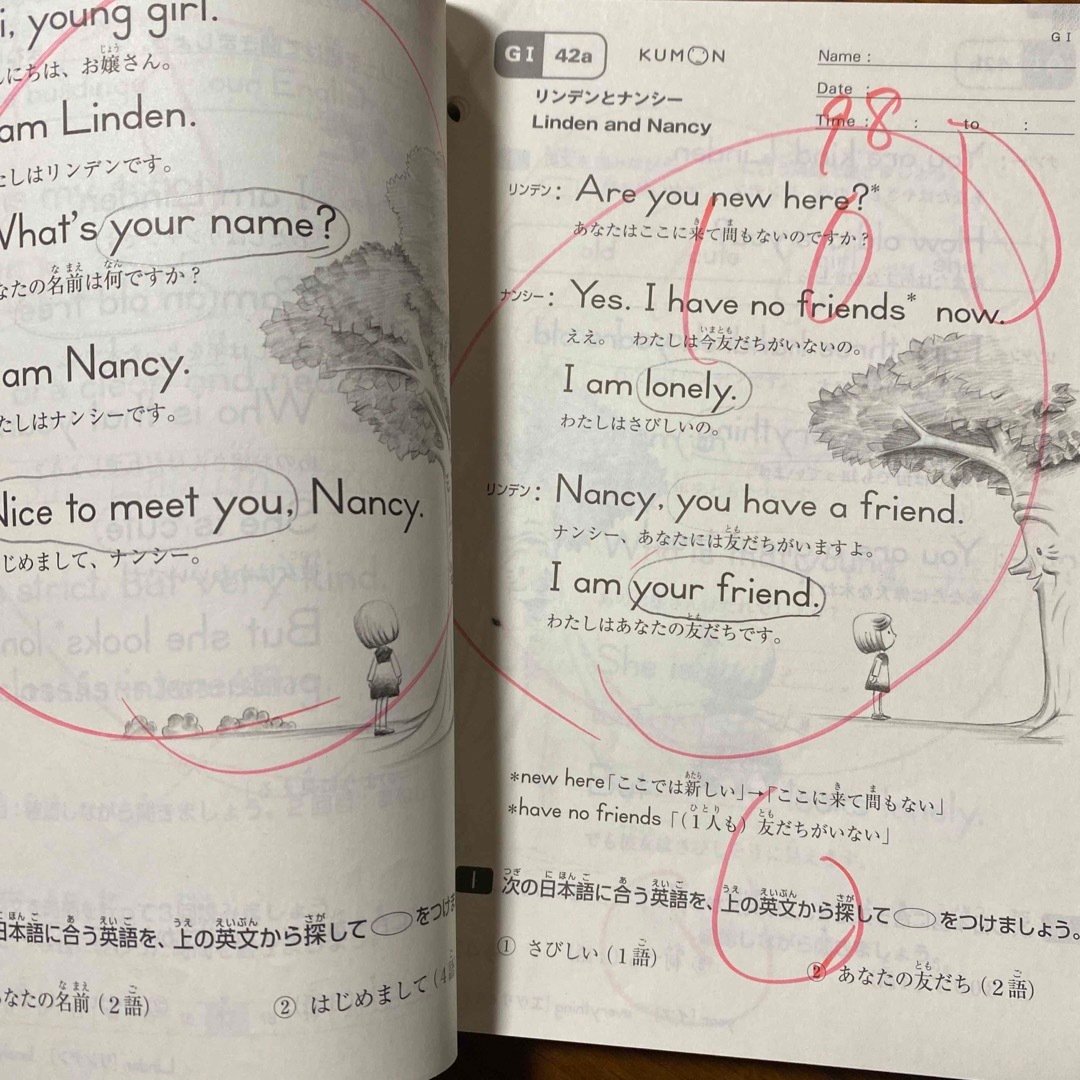 i, young girl.
にちは、お嬢さん。
じょう
am Linden.
たしはリンデンです。
What's your name?
なたの名前は何ですか？
なまえ なん
am Nancy.
たしはナンシーです。
Nice to meet you, Nancy.
じめまして、ナンシー。
日本語に合う英語を、上の英文から探して をつけま
にほんご あ えいご うえ えいぶん さが
なたの名前（2語）
なまえ ご
② はじめまして（4語
GI
GI 42a KUMON
Name :
Date :
Time : : to :
98
100
リンデンとナンシー
Linden and Nancy
リンデン： Are you new here?*
あなたはここに来て間もないのですか？
き ま
ナンシー： Yes. I have no friends* now.
ええ。 わたしは今友だちがいないの。
いまとも
I am lonely.
わたしはさびしいの。
リンデン： Nancy, you have a friend.
ナンシー、あなたには友だちがいますよ。
とも
I am your friend.
わたしはあなたの友だちです。
とも
*new here「ここでは新しい」→「ここに来て間もない」
あたら き ま
*have no friends「（1人も）友だちがいない」
ひとり とも
1 次の日本語に合う英語を、上の英文から探して をつけましょう。
つぎ にほんご あ えいご うえ えいぶん さが
① さびしい（1語）
ご
② あなたの友だち（2語）
とも ご